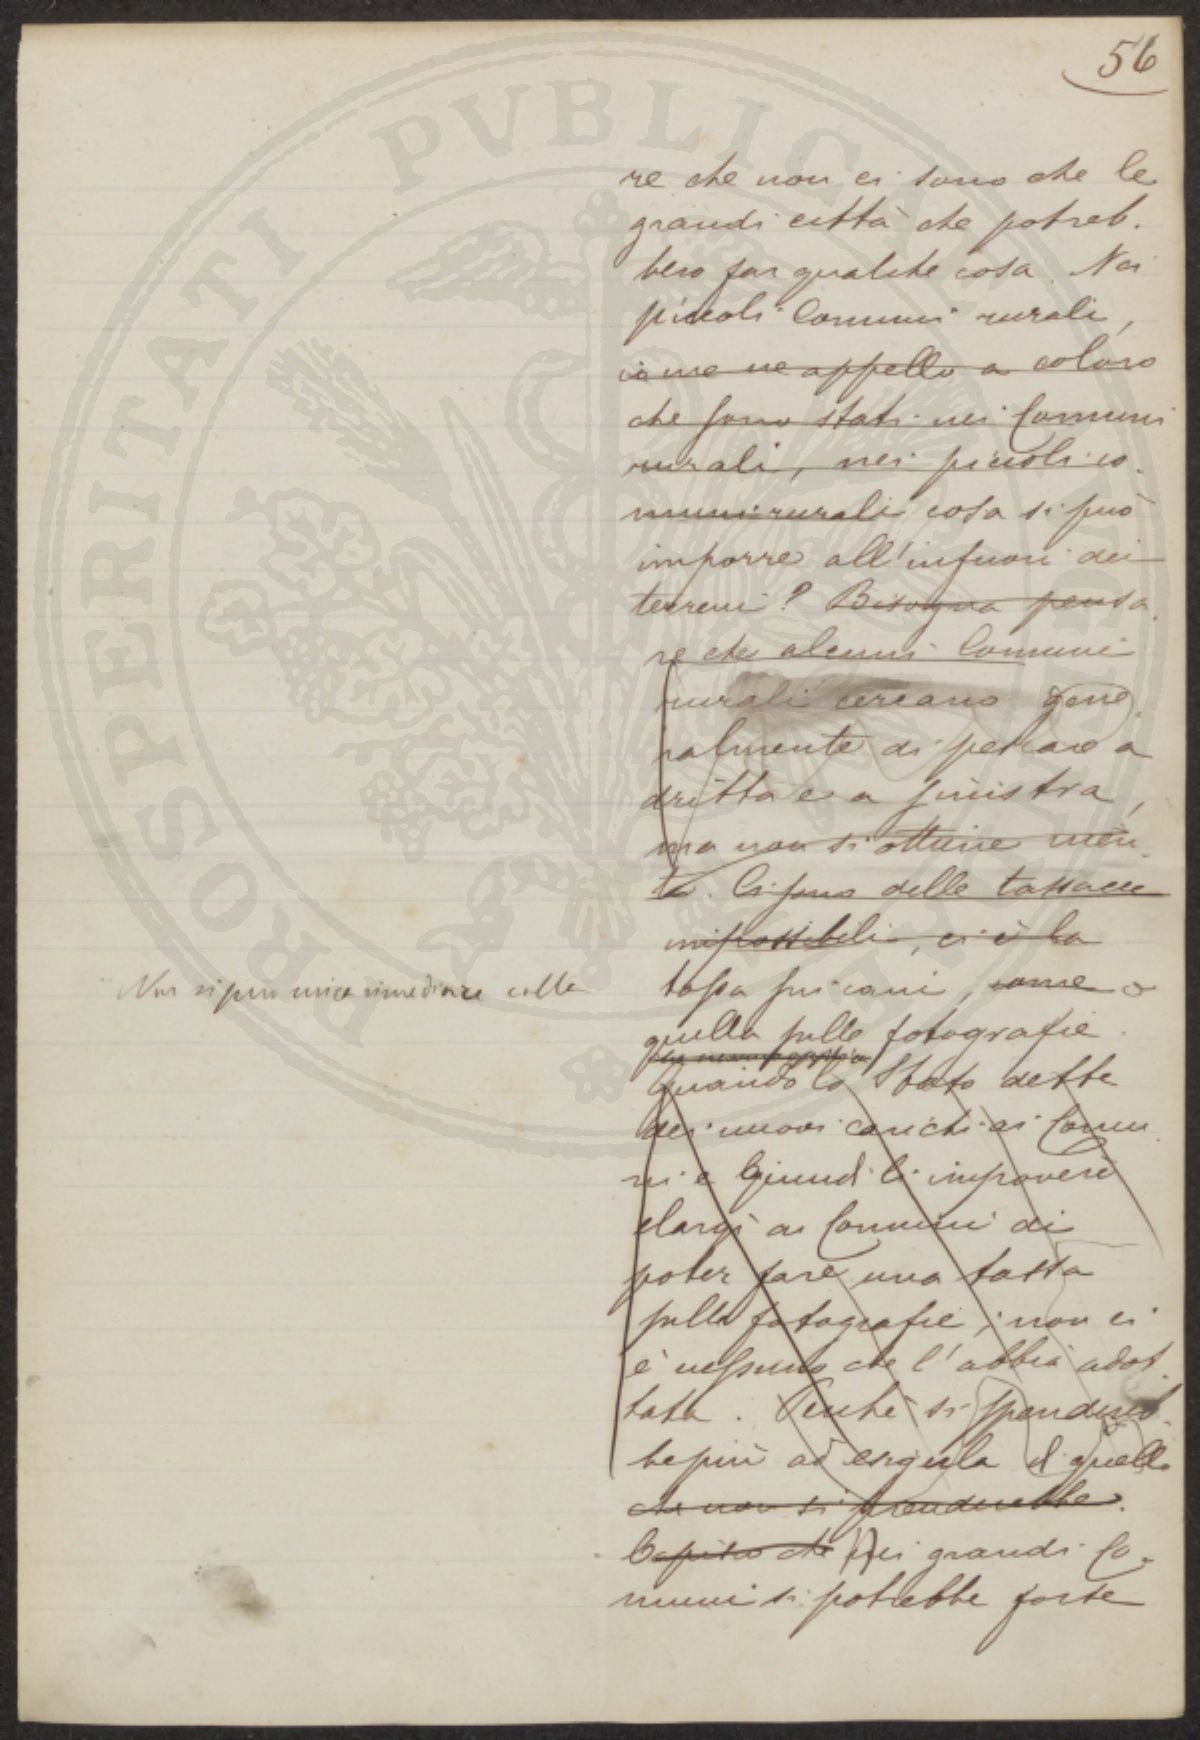 56
re che non ci sono che le
grandi città che potreb-
bero far qualche cosa. Nei
piccoli Comuni rurali,
io me ne appello a coloro
che sono stati nei Comuni
rurali, nei piccoli co-
muni rurali cosa si può
imporre all'infuori dei
terreni? Bisogna pensa
re che alcuni Comuni
rurali cercano gene
ralmente di pescare a
dritta e a sinistra,
ma non si ottiene nien-
te. Ci sono delle tassacce
impossibili, ci è la
Non si può mica rimediare colla
tassa sui cani, come o
quella sulle fotografie.
Quando lo Stato dette
dei nuovi carichi ai Comu
ni e quindi li impoverì
elargì ai Comuni di
poter fare una tassa
sulle fotografie; non ci
è nessuno che l'abbia adot
tata. Perchè si spendereb-
be più ad esigerla di quello
che non si prenderebbe.
Capisco che nei grandi Co-
muni si potrebbe forse
PROSPERITATI PVBLICAE